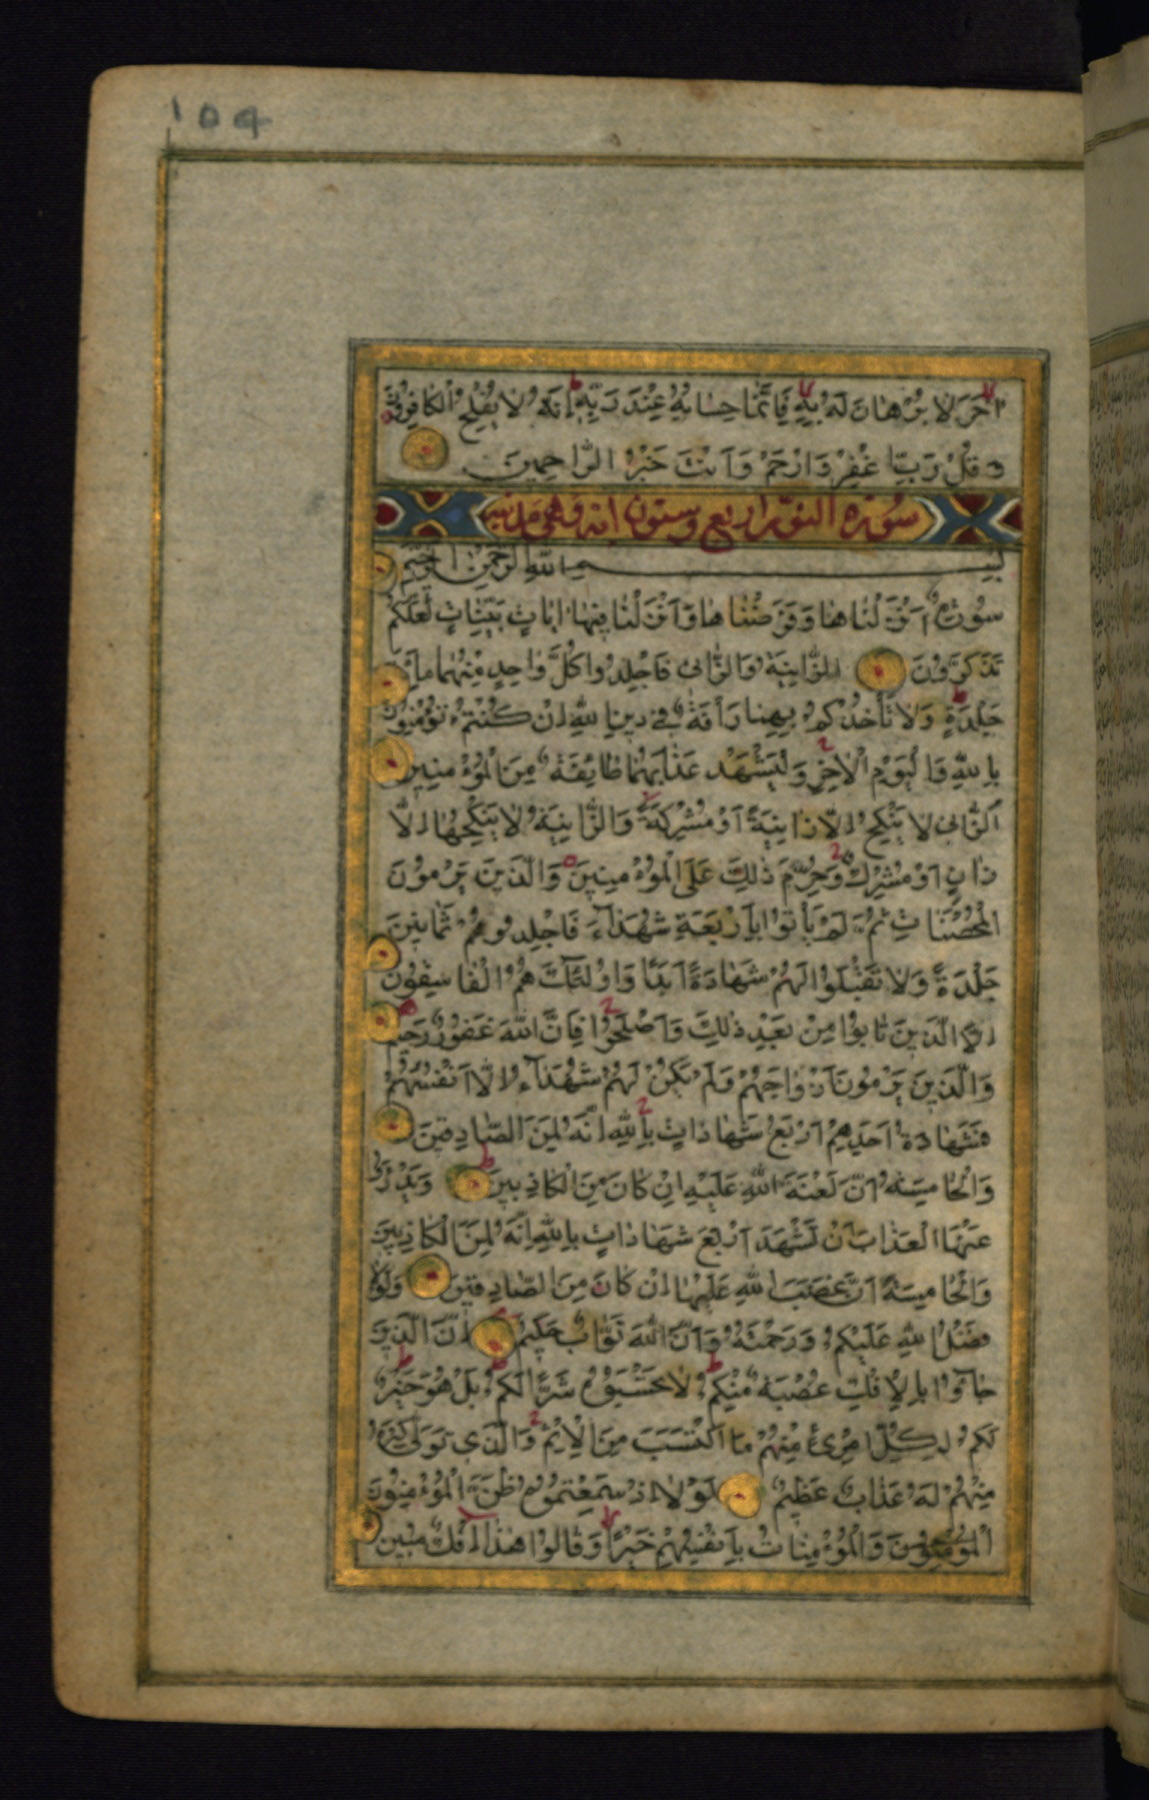 ١٥٩
اٰخَرَ لَا بُرْهَانَ لَهُ بِهِ فَاِنَّمَا حِسَابُهُ عِنْدَ رَبِّهِ اِنَّهُ لَا يُفْلِحُ الْكَافِرُونَ
وَ قُلْ رَبِّ اغْفِرْ وَارْحَمْ وَاَنْتَ خَيْرُ الرَّاحِمِينَ
سورة النور اربع وستون اية وهي مدنية
بِسْمِ اللهِ الرَّحْمٰنِ الرَّحِيمِ
سُورَةٌ اَنْزَلْنَاهَا وَفَرَضْنَاهَا وَاَنْزَلْنَا فِيهَا اٰيَاتٍ بَيِّنَاتٍ لَعَلَّكُمْ
تَذَكَّرُونَ اَلزَّانِيَةُ وَالزَّانِى فَاجْلِدُوا كُلَّ وَاحِدٍ مِنْهُمَا مِاَئَةَ
جَلْدَةٍ وَلَا تَأْخُذْكُمْ بِهِمَا رَأْفَةٌ فِى دِينِ اللهِ اِنْ كُنْتُمْ تُؤْمِنُونَ
بِاللهِ وَالْيَوْمِ الْاٰخِرِ وَلْيَشْهَدْ عَذَابَهُمَا طَائِفَةٌ مِنَ الْمُؤْمِنِينَ
اَلزَّانِى لَا يَنْكِحُ اِلَّا زَانِيَةً اَوْ مُشْرِكَةً وَالزَّانِيَةُ لَا يَنْكِحُهَا اِلَّا
زَانٍ اَوْ مُشْرِكٌ وَحُرِّمَ ذٰلِكَ عَلَى الْمُؤْمِنِينَ وَالَّذِينَ يَرْمُونَ
الْمُحْصَنَاتِ ثُمَّ لَمْ يَأْتُوا بِاَرْبَعَةِ شُهَدَآءَ فَاجْلِدُوهُمْ ثَمَانِينَ
جَلْدَةً وَلَا تَقْبَلُوا لَهُمْ شَهَادَةً اَبَدًا وَاُولٰئِكَ هُمُ الْفَاسِقُونَ
اِلَّا الَّذِينَ تَابُوا مِنْ بَعْدِ ذٰلِكَ وَاَصْلَحُوا فَاِنَّ اللهَ غَفُورٌ رَحِيمٌ
وَالَّذِينَ يَرْمُونَ اَزْوَاجَهُمْ وَلَمْ يَكُنْ لَهُمْ شُهَدَآءُ اِلَّا اَنْفُسُهُمْ
فَشَهَادَةُ اَحَدِهِمْ اَرْبَعُ شَهَادَاتٍ بِاللهِ اِنَّهُ لَمِنَ الصَّادِقِينَ
وَالْخَامِسَةُ اَنَّ لَعْنَةَ اللهِ عَلَيْهِ اِنْ كَانَ مِنَ الْكَاذِبِينَ وَيَدْرَؤُا
عَنْهَا الْعَذَابَ اَنْ تَشْهَدَ اَرْبَعَ شَهَادَاتٍ بِاللهِ اِنَّهُ لَمِنَ الْكَاذِبِينَ
وَالْخَامِسَةَ اَنَّ غَضَبَ اللهِ عَلَيْهَا اِنْ كَانَ مِنَ الصَّادِقِينَ وَلَوْلَا
فَضْلُ اللهِ عَلَيْكُمْ وَرَحْمَتُهُ وَاَنَّ اللهَ تَوَّابٌ حَكِيمٌ اِنَّ الَّذِينَ
جَاؤُا بِالْاِفْكِ عُصْبَةٌ مِنْكُمْ لَا تَحْسَبُوهُ شَرًّا لَكُمْ بَلْ هُوَ خَيْرٌ
لَكُمْ لِكُلِّ امْرِئٍ مِنْهُمْ مَا اكْتَسَبَ مِنَ الْاِثْمِ وَالَّذِى تَوَلّٰى كِبْرَهُ
مِنْهُمْ لَهُ عَذَابٌ عَظِيمٌ لَوْلَا اِذْ سَمِعْتُمُوهُ ظَنَّ الْمُؤْمِنُونَ
الْمُؤْمِنُونَ وَالْمُؤْمِنَاتُ بِاَنْفُسِهِمْ خَيْرًا وَقَالُوا هٰذَا اِفْكٌ مُبِينٌ